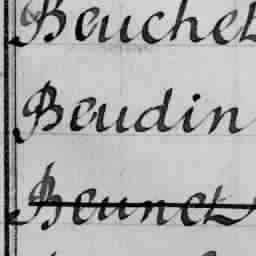 Beuchet
Beudin
Beunet